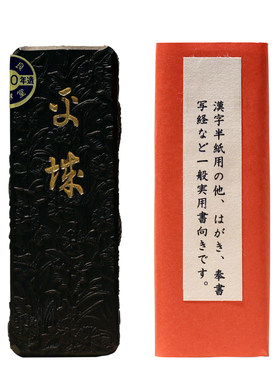 平城
0年造
漢字半紙用の他、はがき、奉書
写経など一般実用書向きです。